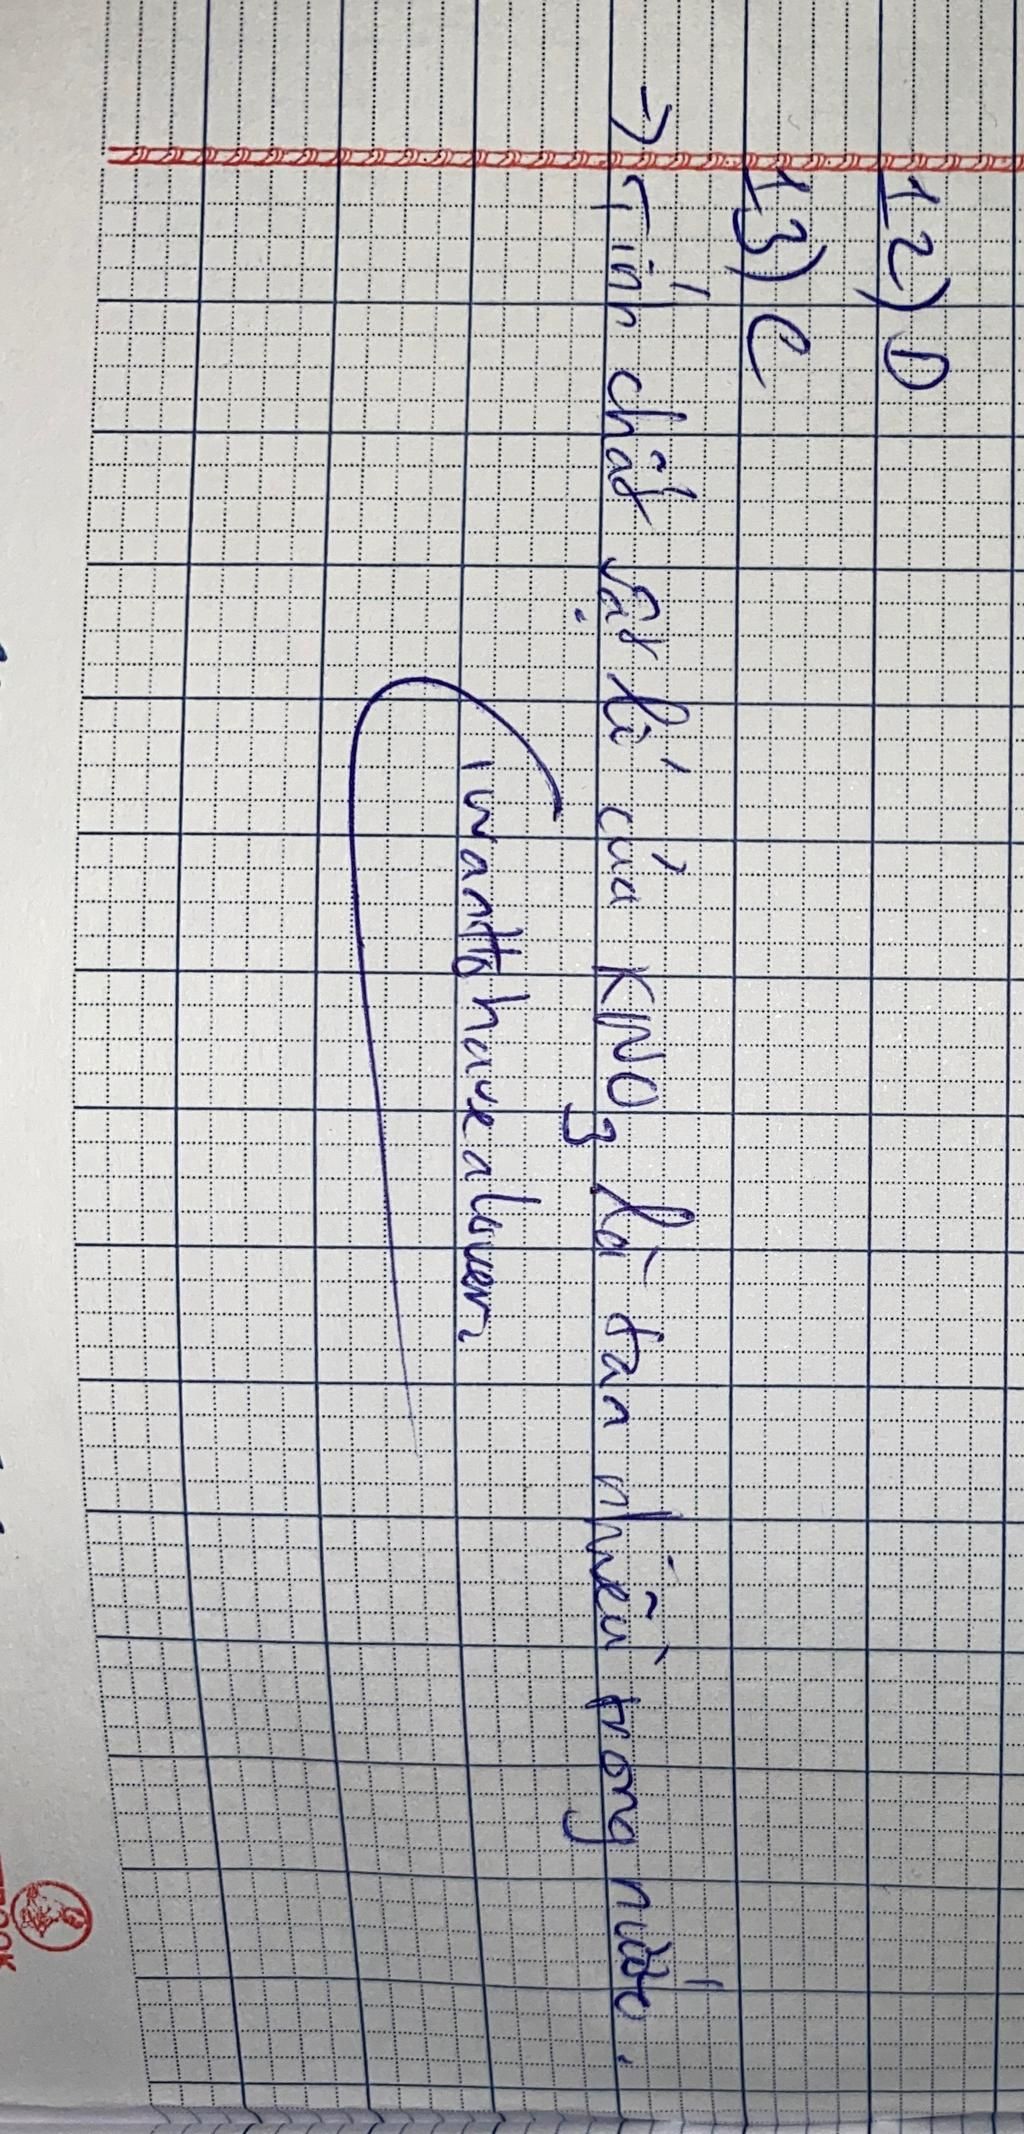 12) D
13) C
→ Tính chất vật lí của KNO3 là tan nhiều trong nước.
I want to have a lover